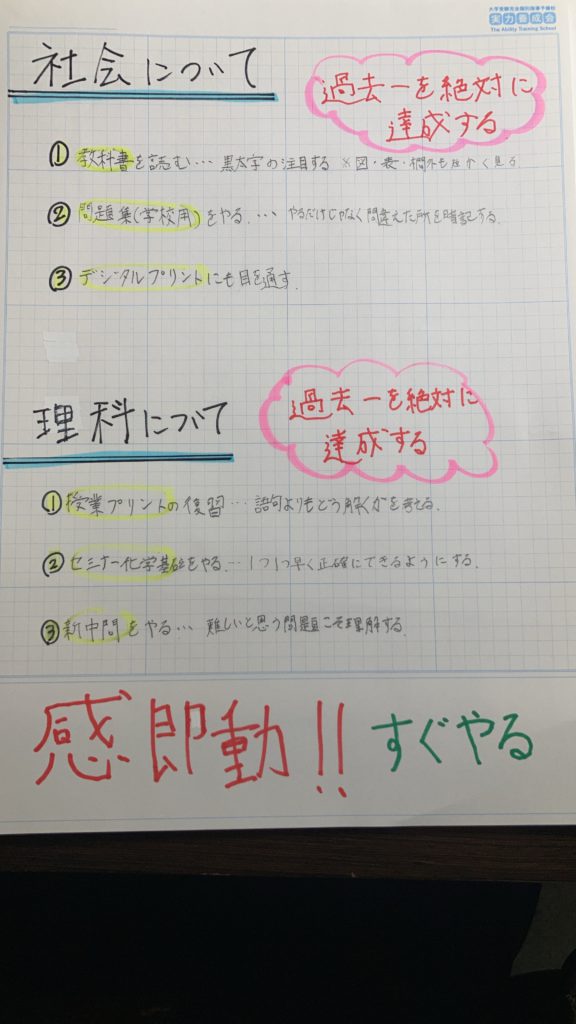 大学受験完全個別指導予備校
実力養成会
The Ability Training School
社会について
過去一を絶対に
達成する
① 教科書を読む… 黒太字の注目する ※図・表・欄外も細かく見る
② 問題集(学校用)をやる.… やるだけじゃなく間違えた所を暗記する.
③ デジタルプリントにも目を通す.
理科について
過去一を絶対に
達成する
① 授業プリントの復習… 語句よりもどう解くかを考える.
② セミナー化学基礎をやる.… 1つ1つ早く正確にできるようにする.
③ 新中問をやる… 難しいと思う問題こそ理解する.
感即動!! すぐやる